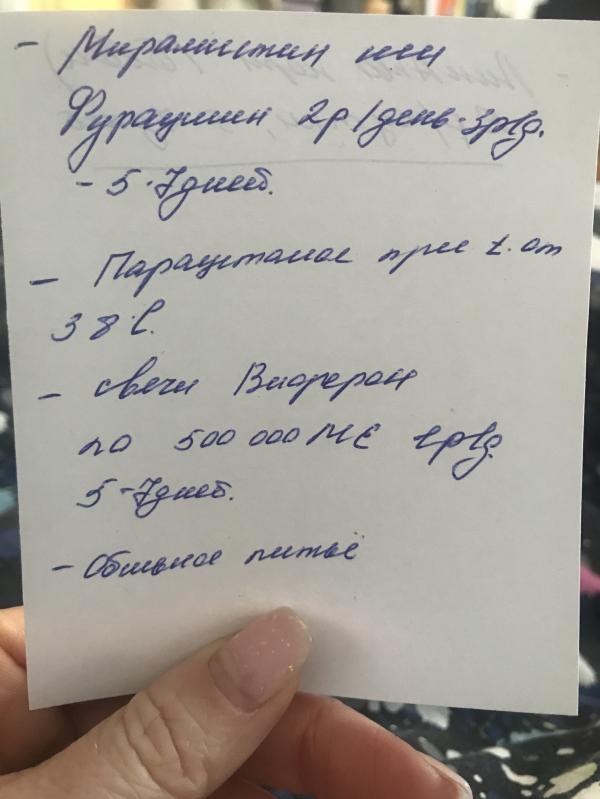 - Мирамистин или
Фурацилин 2р/день-3р/д.
- 5-7дней.
- Парацетамол при t. от
38°C.
- свечи Виферон
по 500 000 МЕ 1р/д.
5-7дней.
- Обильное питьё